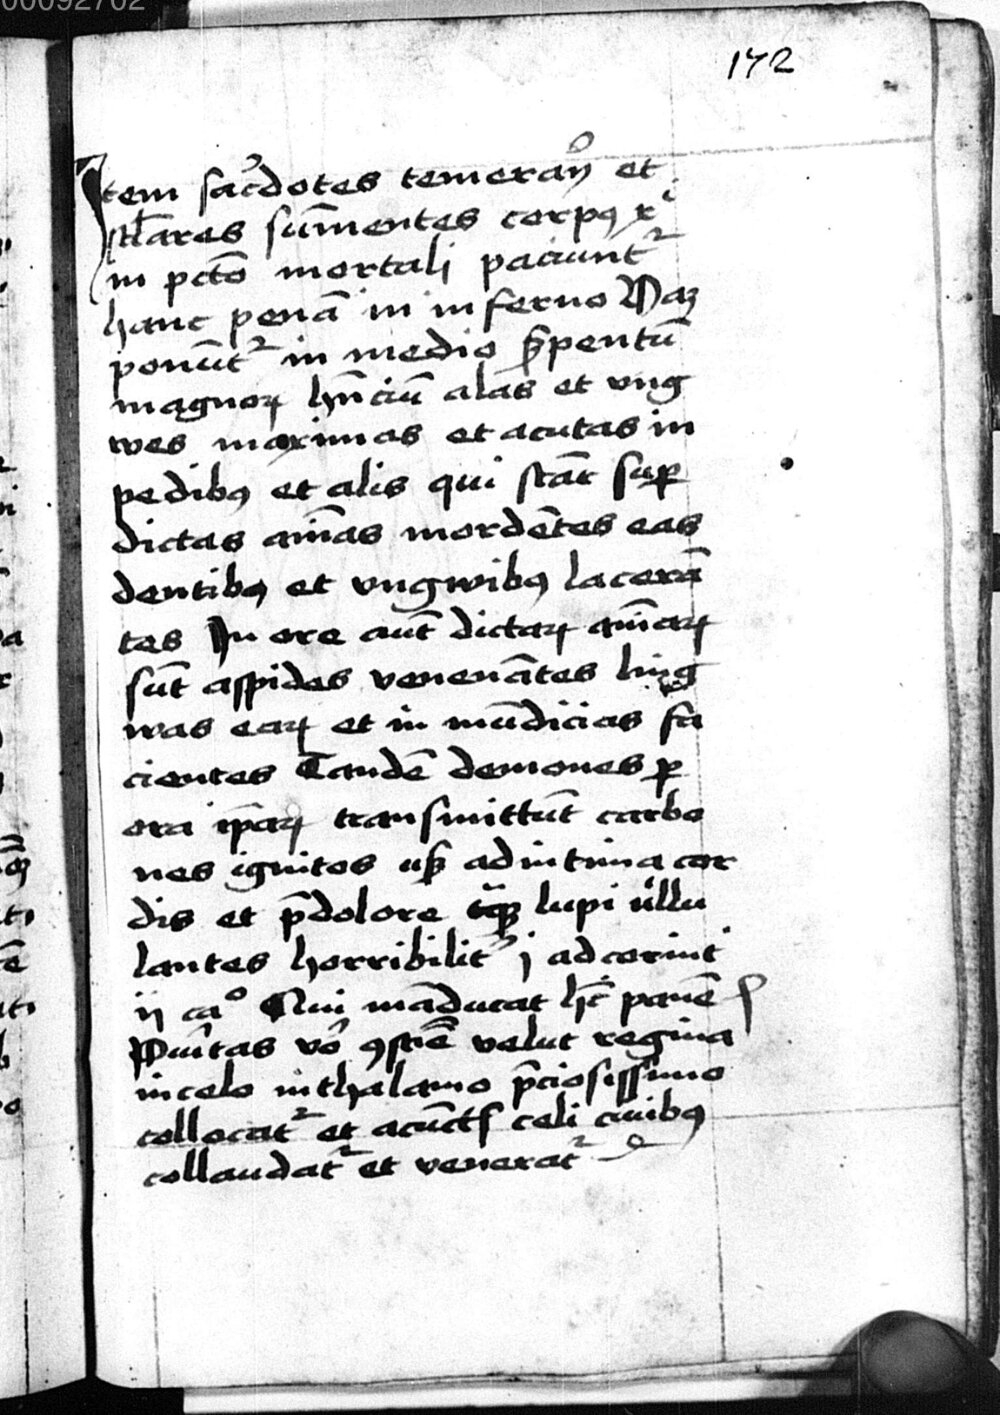 00092702
172
Item sac̛dotes temerarij et
sclares sum̄entes corpꝯ xⁱ
in pctō mortali paciunt᷑
hanc penā in inferno Naꝫ
ponūt᷑ in medio ẜpentū
magnoꝝ hn̄ciū alas et vng
wes maximas et acutas in
pedibꝯ et alis qui stāt suꝑ
dictas aīas mordētes eas
dentibꝯ et vngwibꝯ lacerā
tes In ore aut̄ dictaꝝ aīaꝝ
sūt aspides venenātes ling
was eaꝝ et in mūdicias fa
cientes Tandē demones ꝑ
ora ip̄aꝝ transmittūt carbo
nes ignitos usꝫ ad intima cor
dis et p̄ dolore tāqꝫ lupi ullu
lantes horribilit᷑ j ad corint
ij caº Qui māducat hc̄ panē
Puritas vō ꝯsciē velut regina
in celo in thalamo p̄ciosissimo
collocat᷑ et a cūctis celi ciuibꝯ
collaudat᷑ et venerat᷑